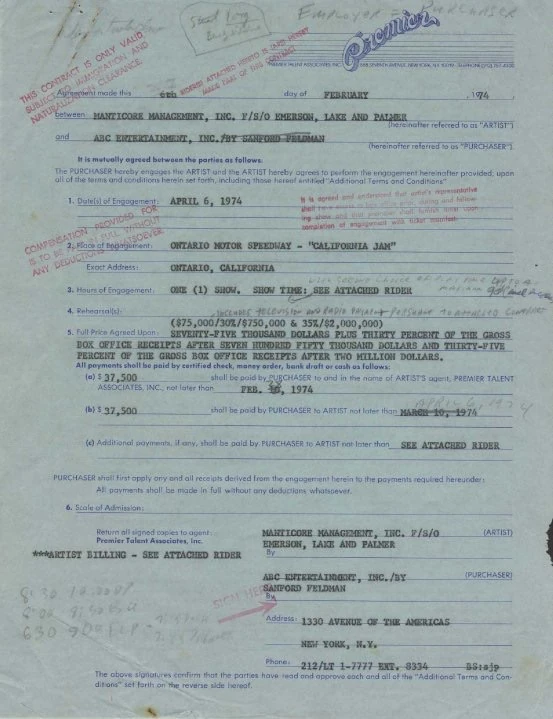 EMPLOYER = PURCHASER
Send Long
Premier
PREMIER TALENT ASSOCIATES, INC.
THIS CONTRACT IS ONLY VALID
SUBJECT TO IMMIGRATION AND
NATURALIZATION CLEARANCE.
RIDERS ATTACHED HERETO IS (ARE) HEREBY
MADE PART OF THIS CONTRACT
Agreement made this 6th day of FEBRUARY , 1974
between MANTICORE MANAGEMENT, INC. F/S/O EMERSON, LAKE AND PALMER
(hereinafter referred to as "ARTIST")
and ABC ENTERTAINMENT, INC./BY SANFORD FELDMAN
(hereinafter referred to as "PURCHASER").
It is mutually agreed between the parties as follows:
The PURCHASER hereby engages the ARTIST and the ARTIST hereby agrees to perform the engagement hereinafter provided, upon
all of the terms and conditions herein set forth, including those hereof entitled "Additional Terms and Conditions"
1. Date(s) of Engagement: APRIL 6, 1974
It is agreed and understood that artist's representative
completion of engagement with ticket manifest.
COMPENSATION PROVIDED FOR
IS TO BE PAID IN FULL WITHOUT
ANY DEDUCTIONS WHATSOEVER
2. Place of Engagement: ONTARIO MOTOR SPEEDWAY - "CALIFORNIA JAM"
Exact Address: ONTARIO, CALIFORNIA
3. Hours of Engagement: ONE (1) SHOW. SHOW TIME: SEE ATTACHED RIDER
4. Rehearsal(s):
INCLUDES TELEVISION AND RADIO
($75,000/30%/$750,000 & 35%/$2,000,000)
5. Full Price Agreed Upon: SEVENTY-FIVE THOUSAND DOLLARS PLUS THIRTY PERCENT OF THE GROSS
BOX OFFICE RECEIPTS AFTER SEVEN HUNDRED FIFTY THOUSAND DOLLARS AND THIRTY-FIVE
PERCENT OF THE GROSS BOX OFFICE RECEIPTS AFTER TWO MILLION DOLLARS.
All payments shall be paid by certified check, money order, bank draft or cash as follows:
(a) $ 37,500 shall be paid by PURCHASER to and in the name of ARTIST'S agent, PREMIER TALENT
ASSOCIATES, INC., not later than FEB. , 1974
APRIL 6, 1974
(b) $ 37,500 shall be paid by PURCHASER to ARTIST not later than MARCH 10, 1974
(c) Additional payments, if any, shall be paid by PURCHASER to ARTIST not later than SEE ATTACHED RIDER
PURCHASER shall first apply any and all receipts derived from the engagement herein to the payments required hereunder:
All payments shall be made in full without any deductions whatsoever.
6. Scale of Admission:
Return all signed copies to agent:
Premier Talent Associates, Inc.
***ARTIST BILLING - SEE ATTACHED RIDER
MANTICORE MANAGEMENT, INC. F/S/O (ARTIST)
EMERSON, LAKE AND PALMER
By
ABC ENTERTAINMENT, INC./BY (PURCHASER)
SANFORD FELDMAN
SIGN HERE
By
Address: 1330 AVENUE OF THE AMERICAS
NEW YORK, N.Y.
Phone: 212/LT 1-7777 EXT. 8334 BS:sjp
The above signatures confirm that the parties have read and approve each and all of the "Additional Terms and Con-
ditions" set forth on the reverse side hereof.